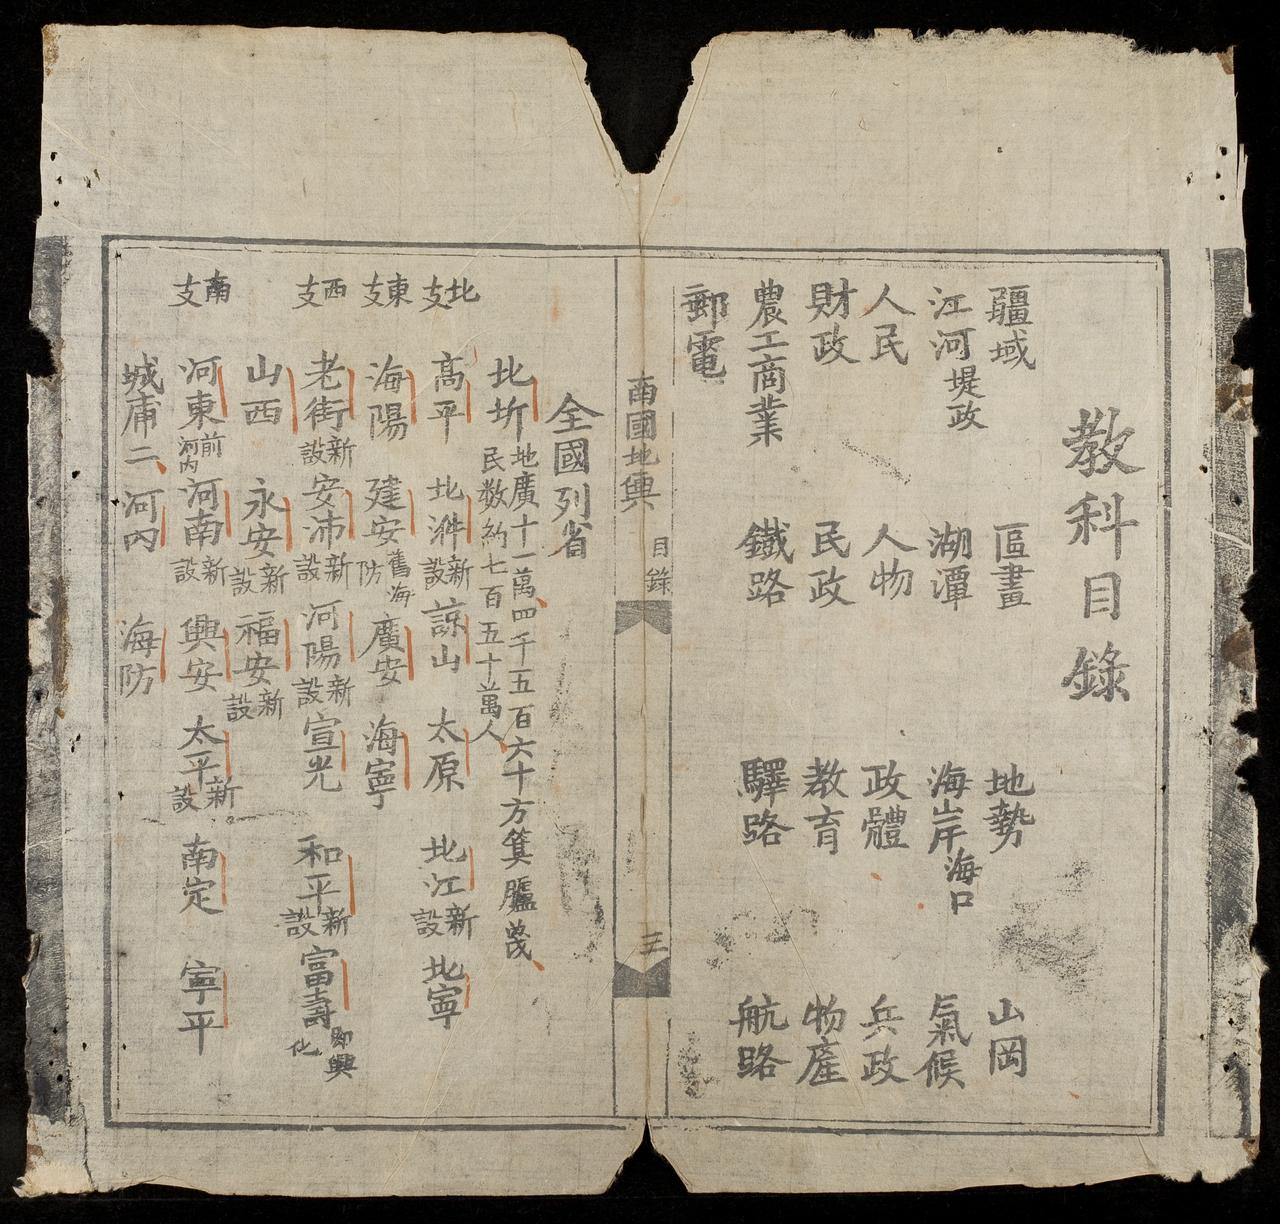 教科目錄
疆域 區畫 地勢 山岡
江河堤政 湖潭 海岸海口 氣候
人民 人物 政體 兵政
財政 民政 教育 物產
農工商業 鐵路 驛路 航路
郵電
南國地輿 目錄 三
全國列省
北圻 地廣十一萬四千五百六十方箕臚茂
民数約七百五十萬人
北支 高平 北𣴓新設 諒山 太原 北江新設 北寧
東支 海陽 建安舊海防 廣安 海寧
西支 老街新設 安沛新設 河陽新設 宣光 和平新設 富壽即興化
山西 永安新設 福安新設
南支 河東前河内 河南新設 興安 太平新設 南定 寧平
城庯二 河内 海防